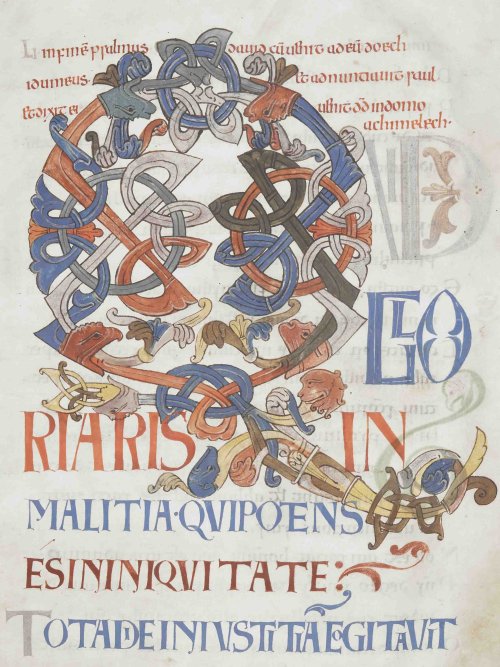 In finē psalmus dauid cū uenit ad eū doech
idumeus. et adnunciauit saul
et dixit ei uenit dd̄ in domo
achimelech.
QUID
GLO
RIARIS IN
MALITIA·QVI POTENS
ES IN INIQVITATE:
TOTA DIE INIVSTITIĀ COGITAVIT